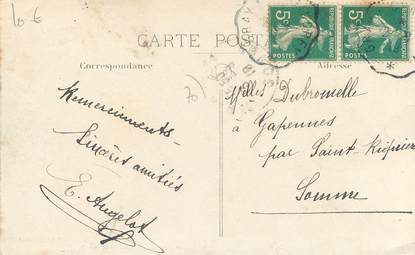 10 €
CARTE POSTALE
Correspondance
Adresse
5c RÉPUBLIQUE FRANÇAISE POSTES
5c RÉPUBLIQUE FRANÇAISE POSTES
Remerciements
Sincères amitiés
E. Angelot
Melles Dubromelle
à Gapennes
par Saint-Riquier
Somme